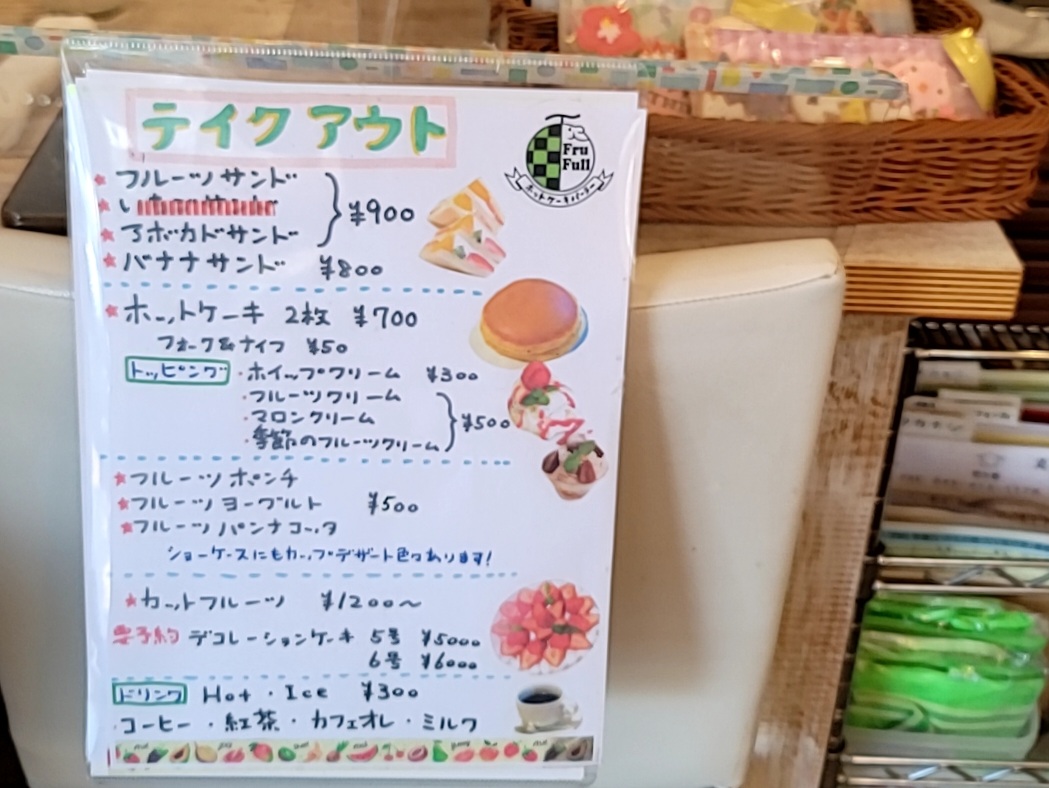 テイクアウト
Fru
Full
ホットケーキパーラー
フルーツサンド
アボカドサンド
¥900
バナナサンド ¥800
ホットケーキ 2枚 ¥700
フォーク&ナイフ ¥50
トッピング ・ホイップクリーム ¥300
・フルーツクリーム
・マロンクリーム
・季節のフルーツクリーム
¥500
フルーツポンチ
フルーツヨーグルト ¥500
フルーツパンナコッタ
ショーケースにもカップデザート色々あります!
カットフルーツ ¥1200〜
要予約 デコレーションケーキ 5号 ¥5000
6号 ¥6000
ドリンク Hot・Ice ¥300
コーヒー・紅茶・カフェオレ・ミルク